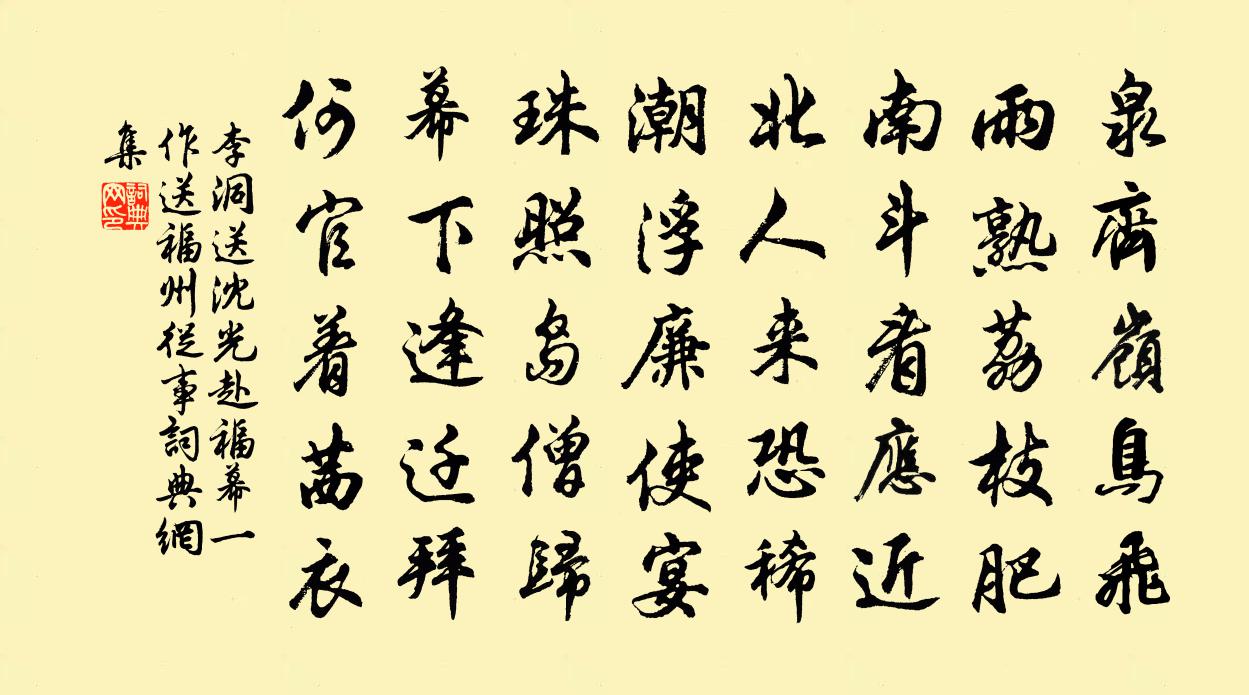 泉齊嶺鳥飛
雨熟荔枝肥
南斗看應近
北人来恐稀
潮浮廉使宴
珠照島僧歸
幕下逢迁拜
何官着茜衣
李洞送沈光赴福幕一
作送福州從事詞典網
集
詞典
网印